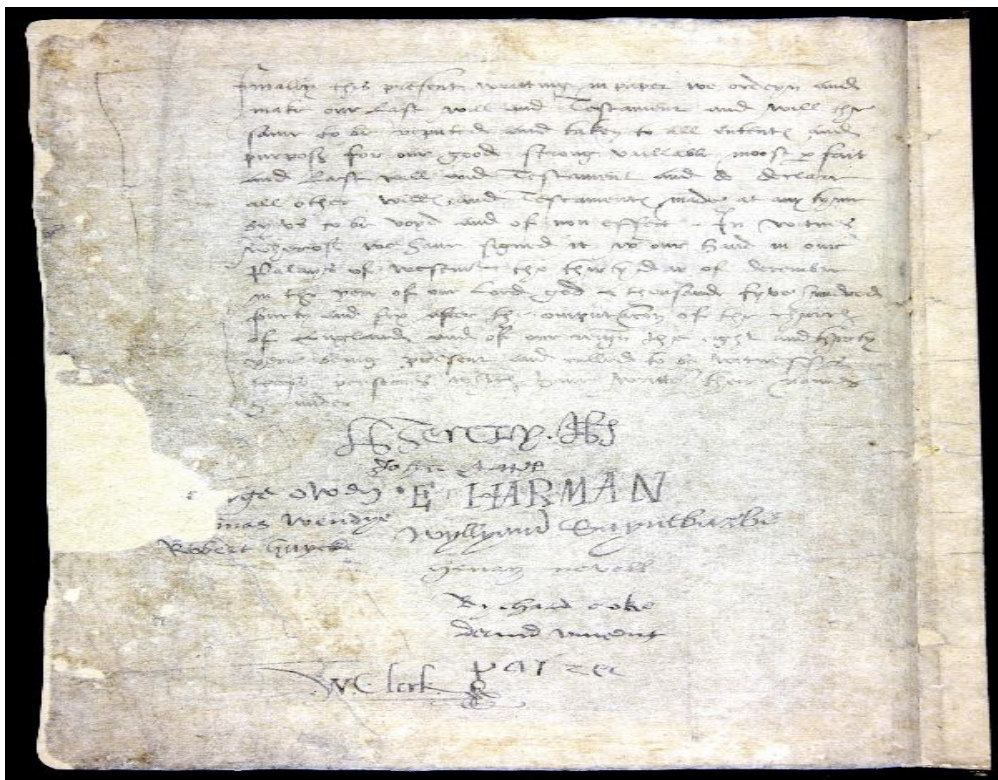 Finally this present writting in paper we ordeyn and
make our last will and Testament and will the
same to be reputed and taken to all ententes and
purposes for our good strong vaillable moost p fait
and last will and Testament and do declare
all other willes and Testamentes made at any tyme
by us to be voyd and of non effect In witnes
wherof we have signed it w our hand in our
Palays of westm the thirty day of december
in the yere of our Lorde god a thousand fyve hundred
fourty and six after the computacon of the churche
of England and of our reign the eight and thirty
yere being present and called to be witnesses
persones which have writte their names
under
John Gate
ge Owen E HARMAN
mas Wendye Wyllyam Sayntbarbe
Robert Huycke
henry nevell
Richard coke
david vincent
patrec
W Clerk